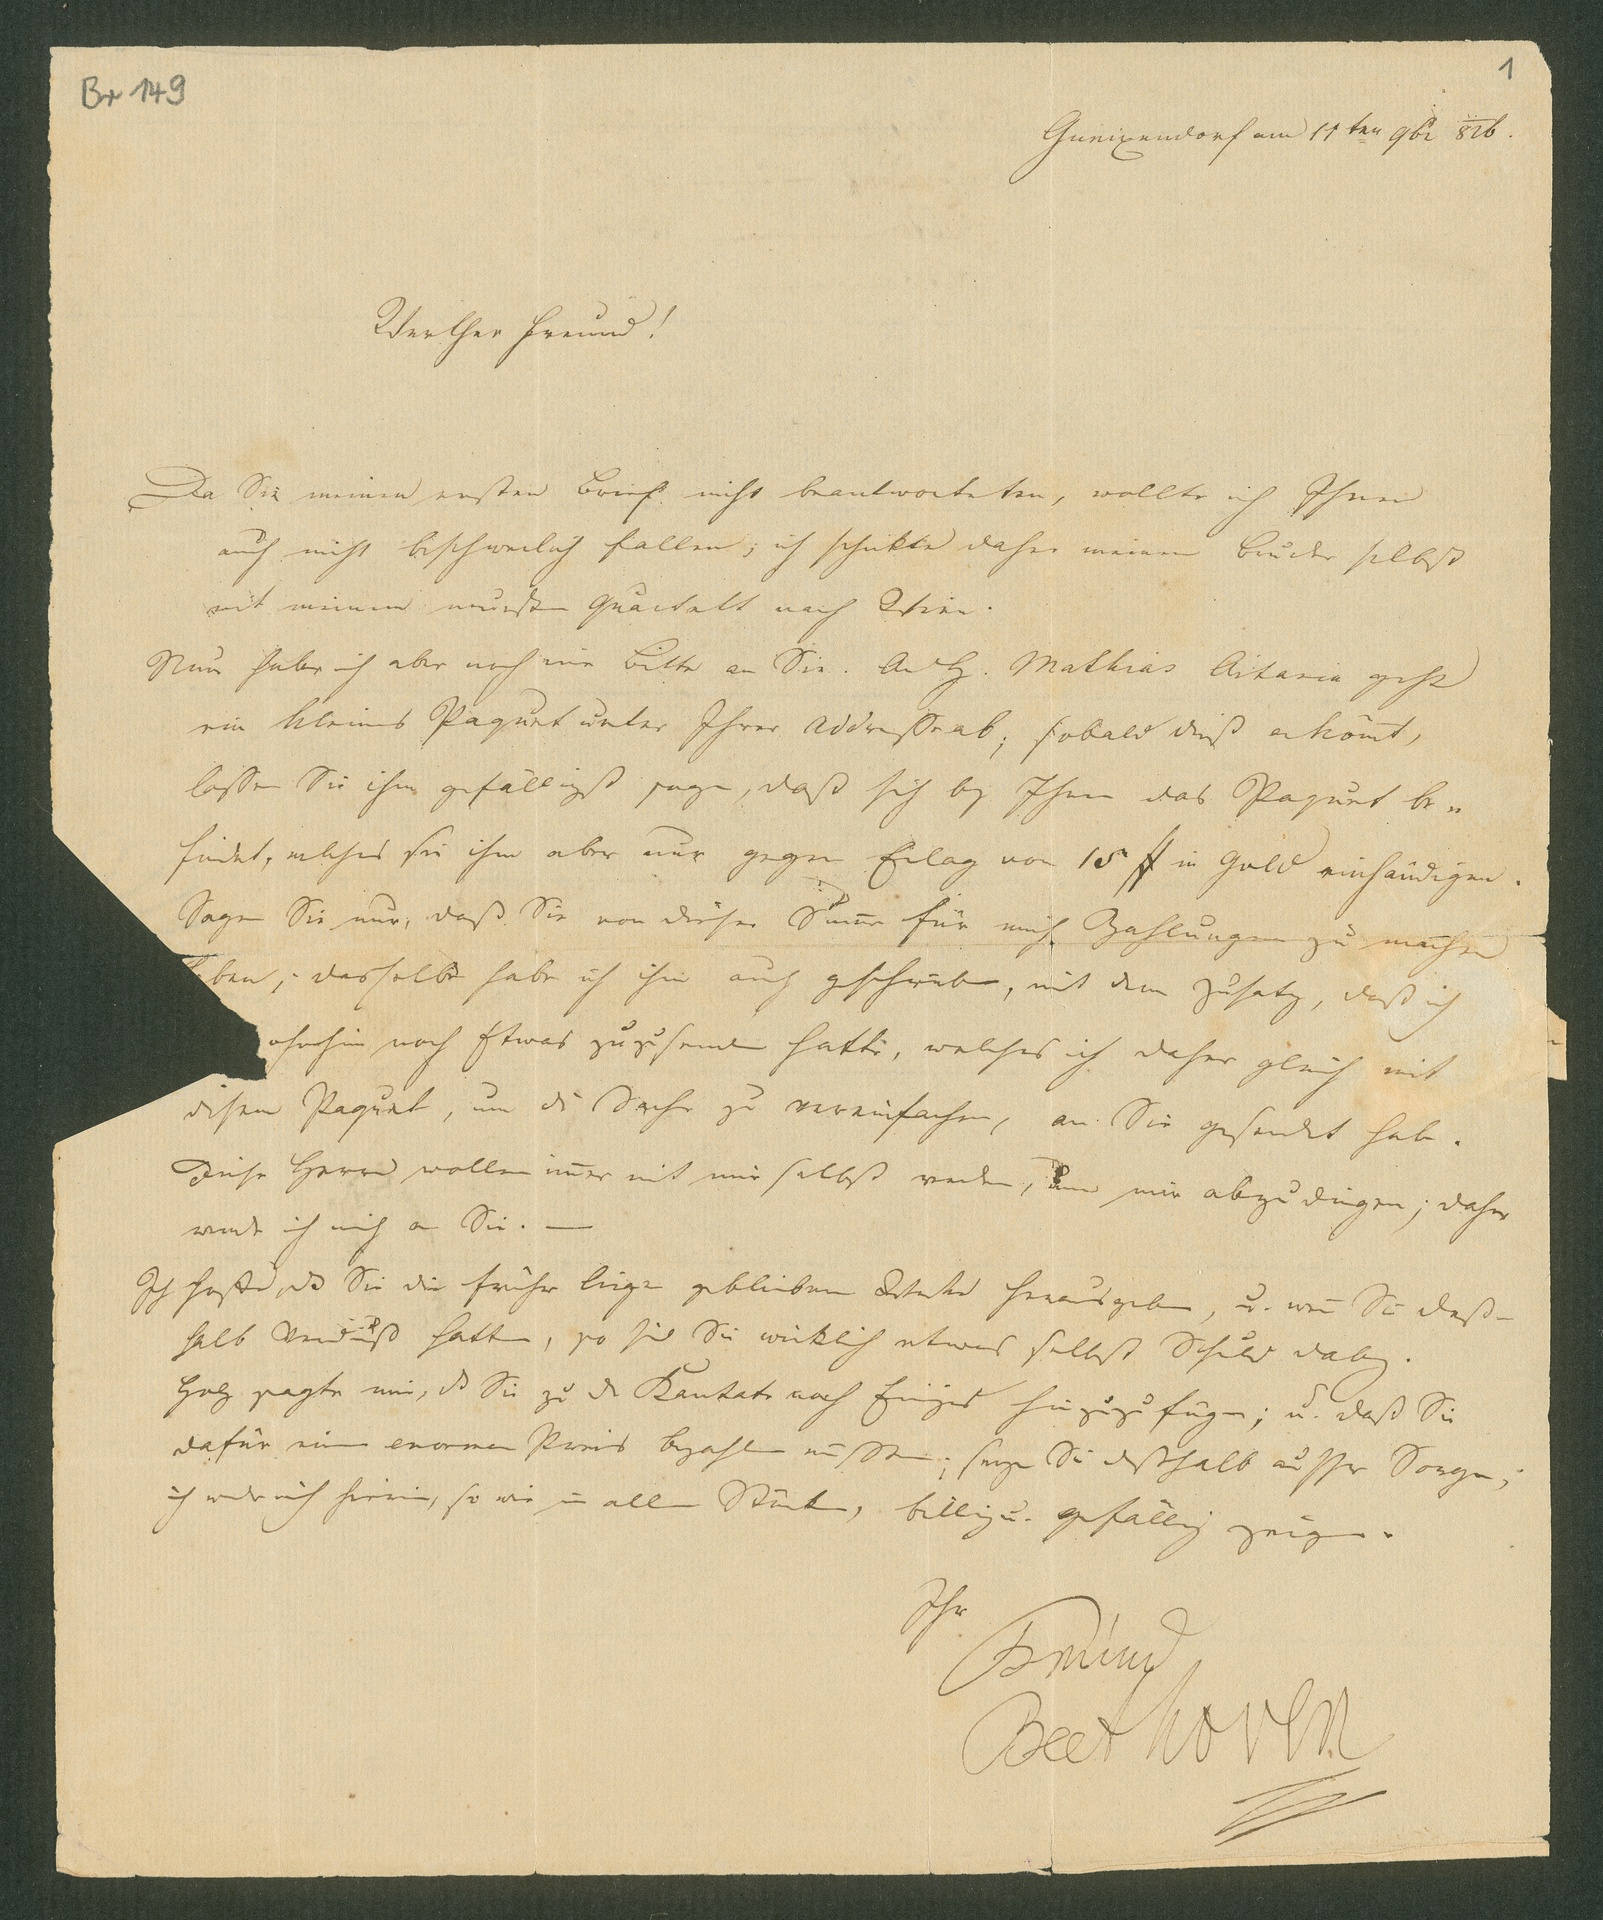 Br 149
1
Gneixendorf am 11ten 9br 826.
Werther Freund!
Da Sie meinen ersten Brief nicht beantworteten, wollte ich Ihnen
auch nicht beschwerlich fallen; ich schickte daher meinen Bruder selbst
mit meinem neuesten Quartett nach Wien.
Nun habe ich aber noch eine Bitte an Sie. An H. Mathias Artaria geht
ein kleines Paquet unter Ihrer Addresse ab; sobald dieß ankom̅t,
lassen Sie ihm gefälligst sagen, daß sich bey Ihnen das Paquet be-
findet, welches sie ihm aber nur gegen Erlag von 15 # in Gold einhändigen.
Sagen Sie nur, daß Sie von dieser Sum̅e für mich Zahlungen zu machen
ben; dasselbe habe ich ihm auch geschrieben, mit dem Zusatz, daß ich
ohnehin noch Etwas zuzusenden hatte, welches ich daher gleich mit
diesem Paquet, um die Sache zu vereinfachen, an Sie gesendet habe.
Diese Herren wollen im̅er mit mir selbst reden, um mir abzudingen; daher
wende ich mich an Sie. —
Ich hoffe, daß Sie die früher liegen gebliebenen Werke herausgeben, u. wen̅ Sie deß-
halb Verdruß hatten, so sind Sie wirklich etwas selbst Schuld dabey.
Holz sagte mir, daß Sie zu der Kantate noch Einiges hinzuzufügen; u. daß Sie
dafür einen enormen Preis bezahlen müssten; seyen Sie deßhalb ausser Sorgen;
ich werde mich hierin, so wie in allen Stücken, billig u. gefällig zeigen.
Ihr
Freund
Beethoven